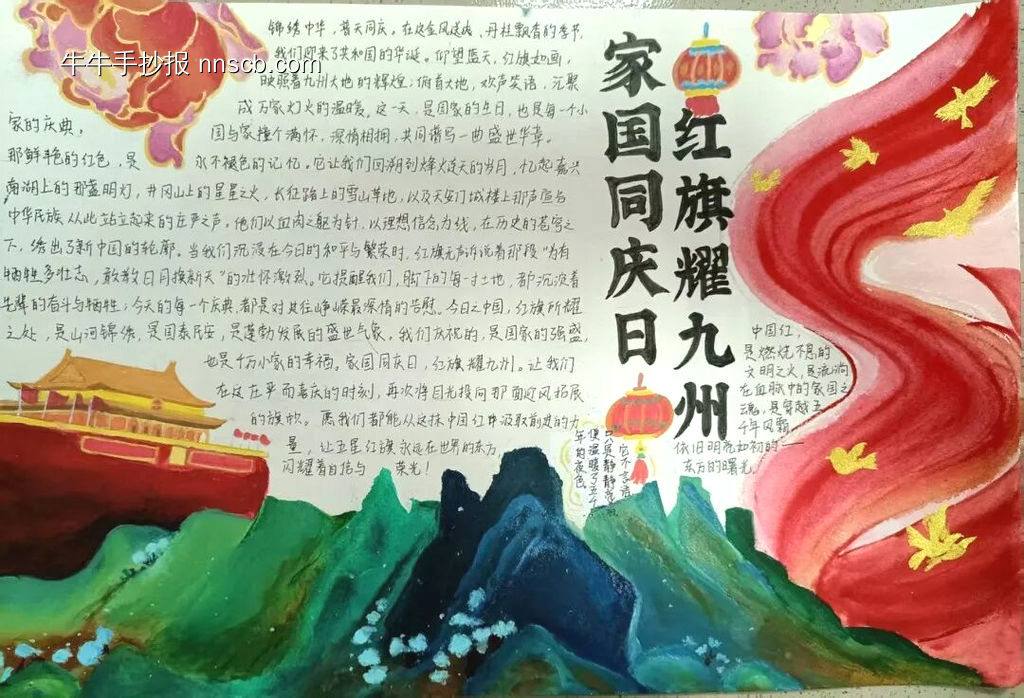 牛牛手抄报 nnscb.com
家国同庆日
红旗耀九州
锦绣中华，普天同庆，在这金风送爽、丹桂飘香的季节，
我们迎来了共和国的华诞。仰望蓝天，红旗如画，
映照着九州大地的辉煌；俯首大地，欢声笑语，汇聚
成万家灯火的温暖。这一天，是国家的生日，也是每一个小
家的庆典，
国与家撞个满怀，深情相拥，共同谱写一曲盛世华章。
那鲜艳的红色，是永不褪色的记忆。它让我们回溯到烽火连天的岁月，忆起嘉兴
南湖上的那盏明灯，井冈山上的星星之火，长征路上的雪山草地，以及天安门城楼上那声宣告
中华民族从此站立起来的庄严之声，他们以血肉之躯为针，以理想信念为线，在历史的苍穹之
下，绣出了新中国的轮廓。当我们沉浸在今日的和平与繁荣时，红旗无声诉说着那段“为有
牺牲多壮志，敢教日月换新天”的壮怀激烈。它提醒我们，脚下的每一寸土地，都沉淀着
先辈的奋斗与牺牲；今天的每一个庆典，都是对其往峥嵘最深情的告慰。今日之中国，红旗所耀
之处，是山河锦绣，是国泰民安，是蓬勃发展的盛世气象。我们庆祝的，是国家的强盛，
也是千万小家的幸福。家国同庆日，红旗耀九州。让我们
在这庄严而喜庆的时刻，再次将目光投向那面迎风招展
的旗帜。愿我们都能从这抹中国红中汲取前进的力
量，让五星红旗永远在世界的东方
闪耀着自信与荣光！
它不言语
只是静静亮着
便温暖了五千
年的夜色
中国红，
是燃烧不息的
文明之火，是流淌
在血脉中的家国之
魂，是穿越五
千年风霜
依旧明亮如初的——
东方的曙光